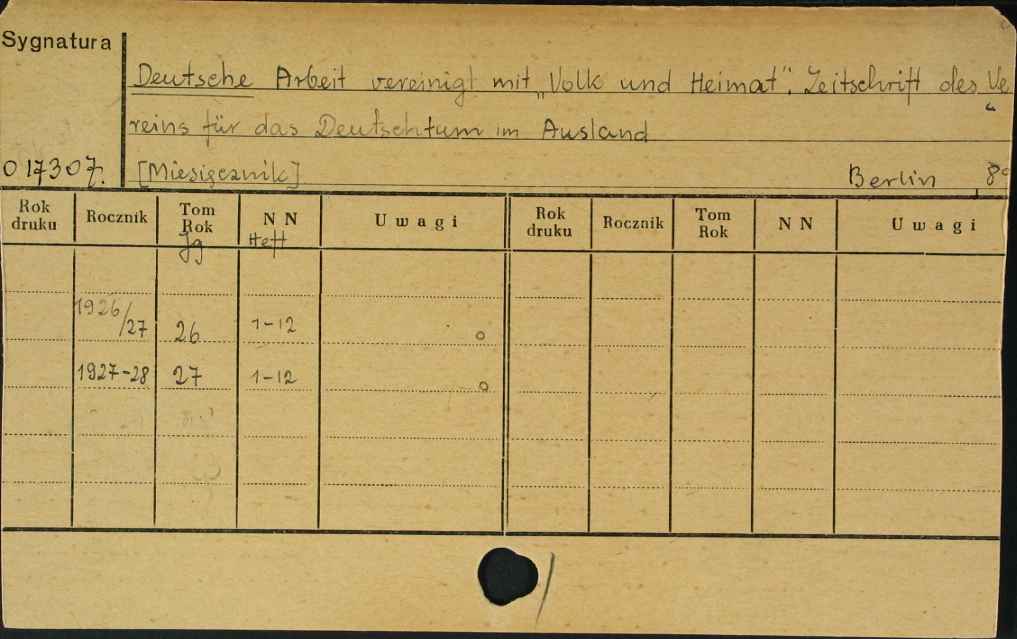 Sygnatura
Deutsche Arbeit vereinigt mit „Volk und Heimat". Zeitschrift des Ve
reins für das Deutschtum im Ausland
017307. [Miesięcznik] Berlin, 8°
Rok druku Rocznik Tom Rok N N U w a g i Rok druku Rocznik Tom Rok N N U w a g i
Jg Heft
1926/27 26 1-12 o
1927-28 27 1-12 o